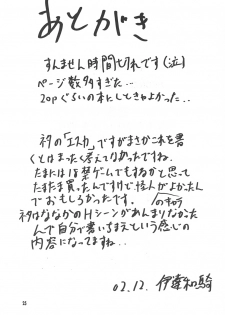 あとがき
すんません時間切れです(泣)
ページ数多すぎた…
20pぐらいの本にしときゃよかった…
ネタの「エスカ」ですがまさかこれを書
くとはまったく考えてなかったですね。
たまには18禁ゲームでもするかと思って
たまたま買ったんですけど怪人がよかったん
でおもしろかったです。
ネタはななかのHシーンがあんまりなかった
んで自分で書いちまえという感じの
内容になってますね…
02.12. 伊達和騎
25